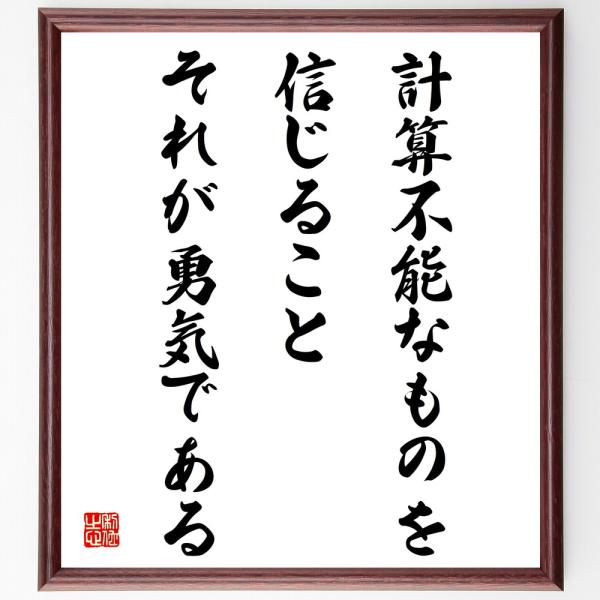 計算不能なものを
信じること
それが勇気である